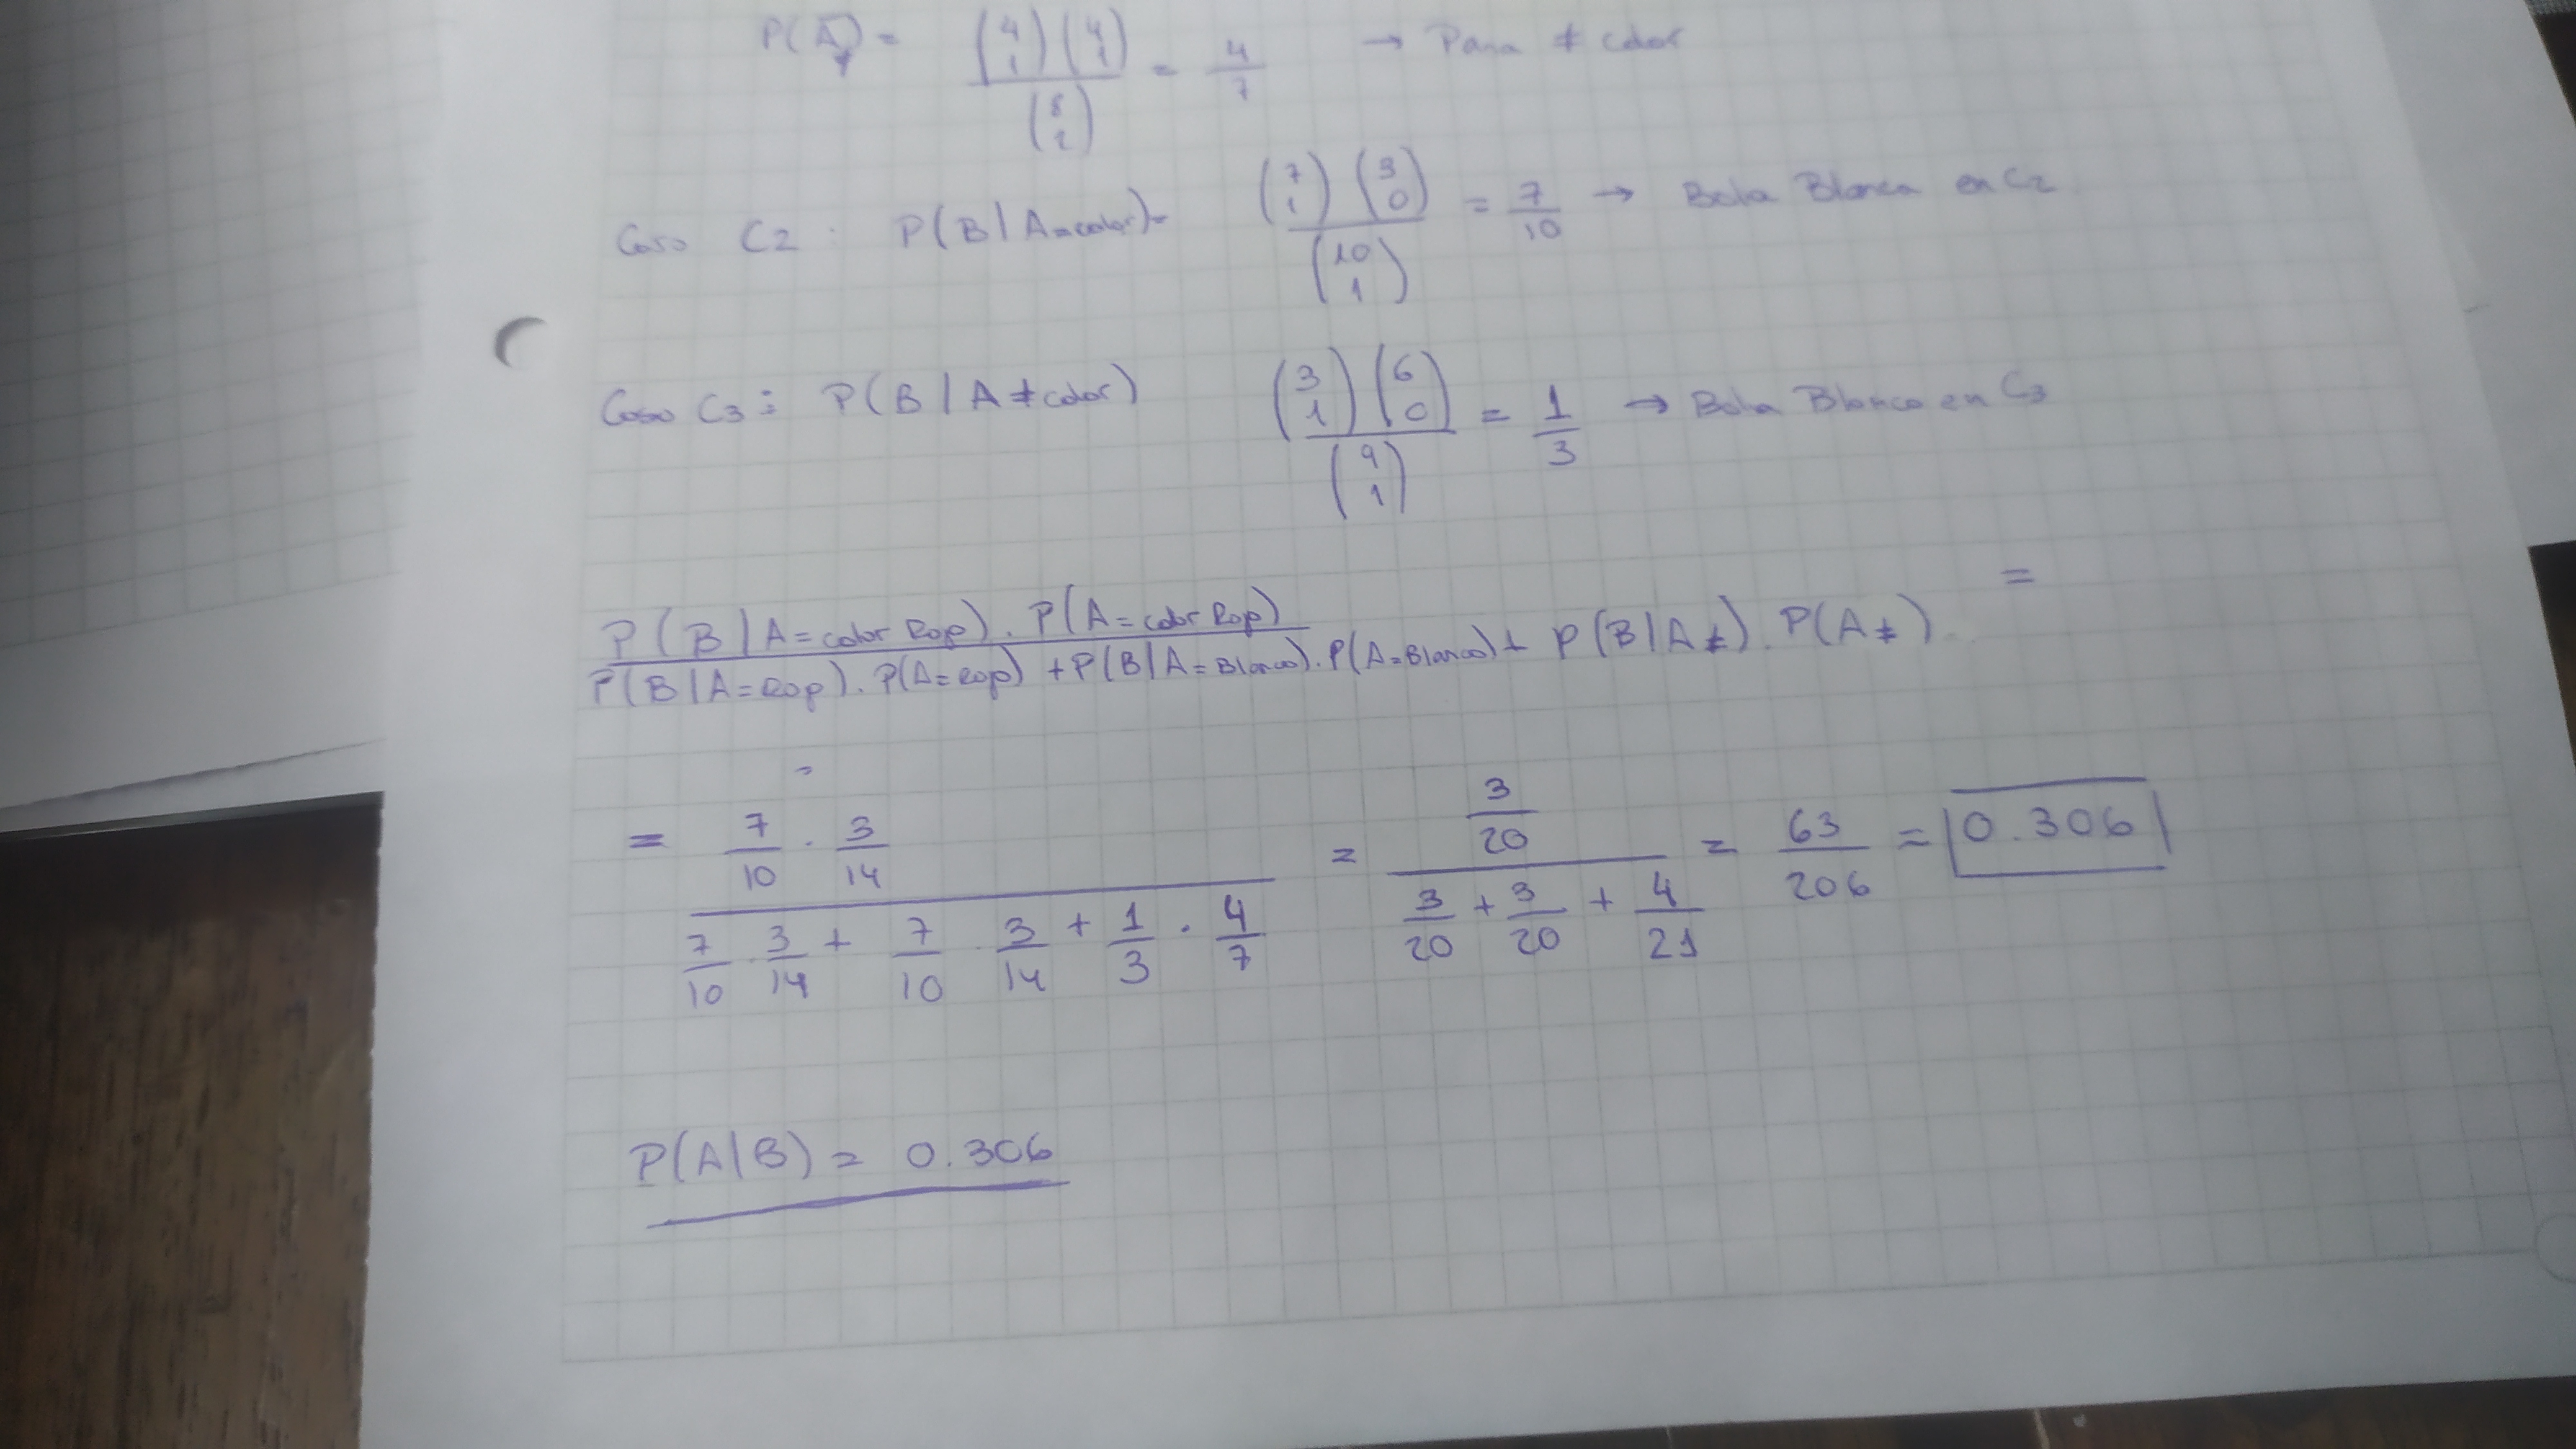 P(A≠) = (4 1)(4 1) / (8 2) = 4/7 → Para ≠ color
Caso C2 : P(B|A=color)= (7 1)(3 0) / (10 1) = 7/10 → Bola Blanca en C2
Caso C3 : P(B|A≠color) (3 1)(6 0) / (9 1) = 1/3 → Bola Blanca en C3
P(B|A=color Rojo) . P(A=color Rojo) =
P(B|A=Rojo) . P(A=Rojo) + P(B|A=Blanco) . P(A=Blanco) + P(B|A≠) . P(A≠)
= 7/10 · 3/14 / (7/10 · 3/14 + 7/10 · 3/14 + 1/3 · 4/7) = 3/20 / (3/20 + 3/20 + 4/21) = 63/206 = 0.306
P(A|B) = 0.306